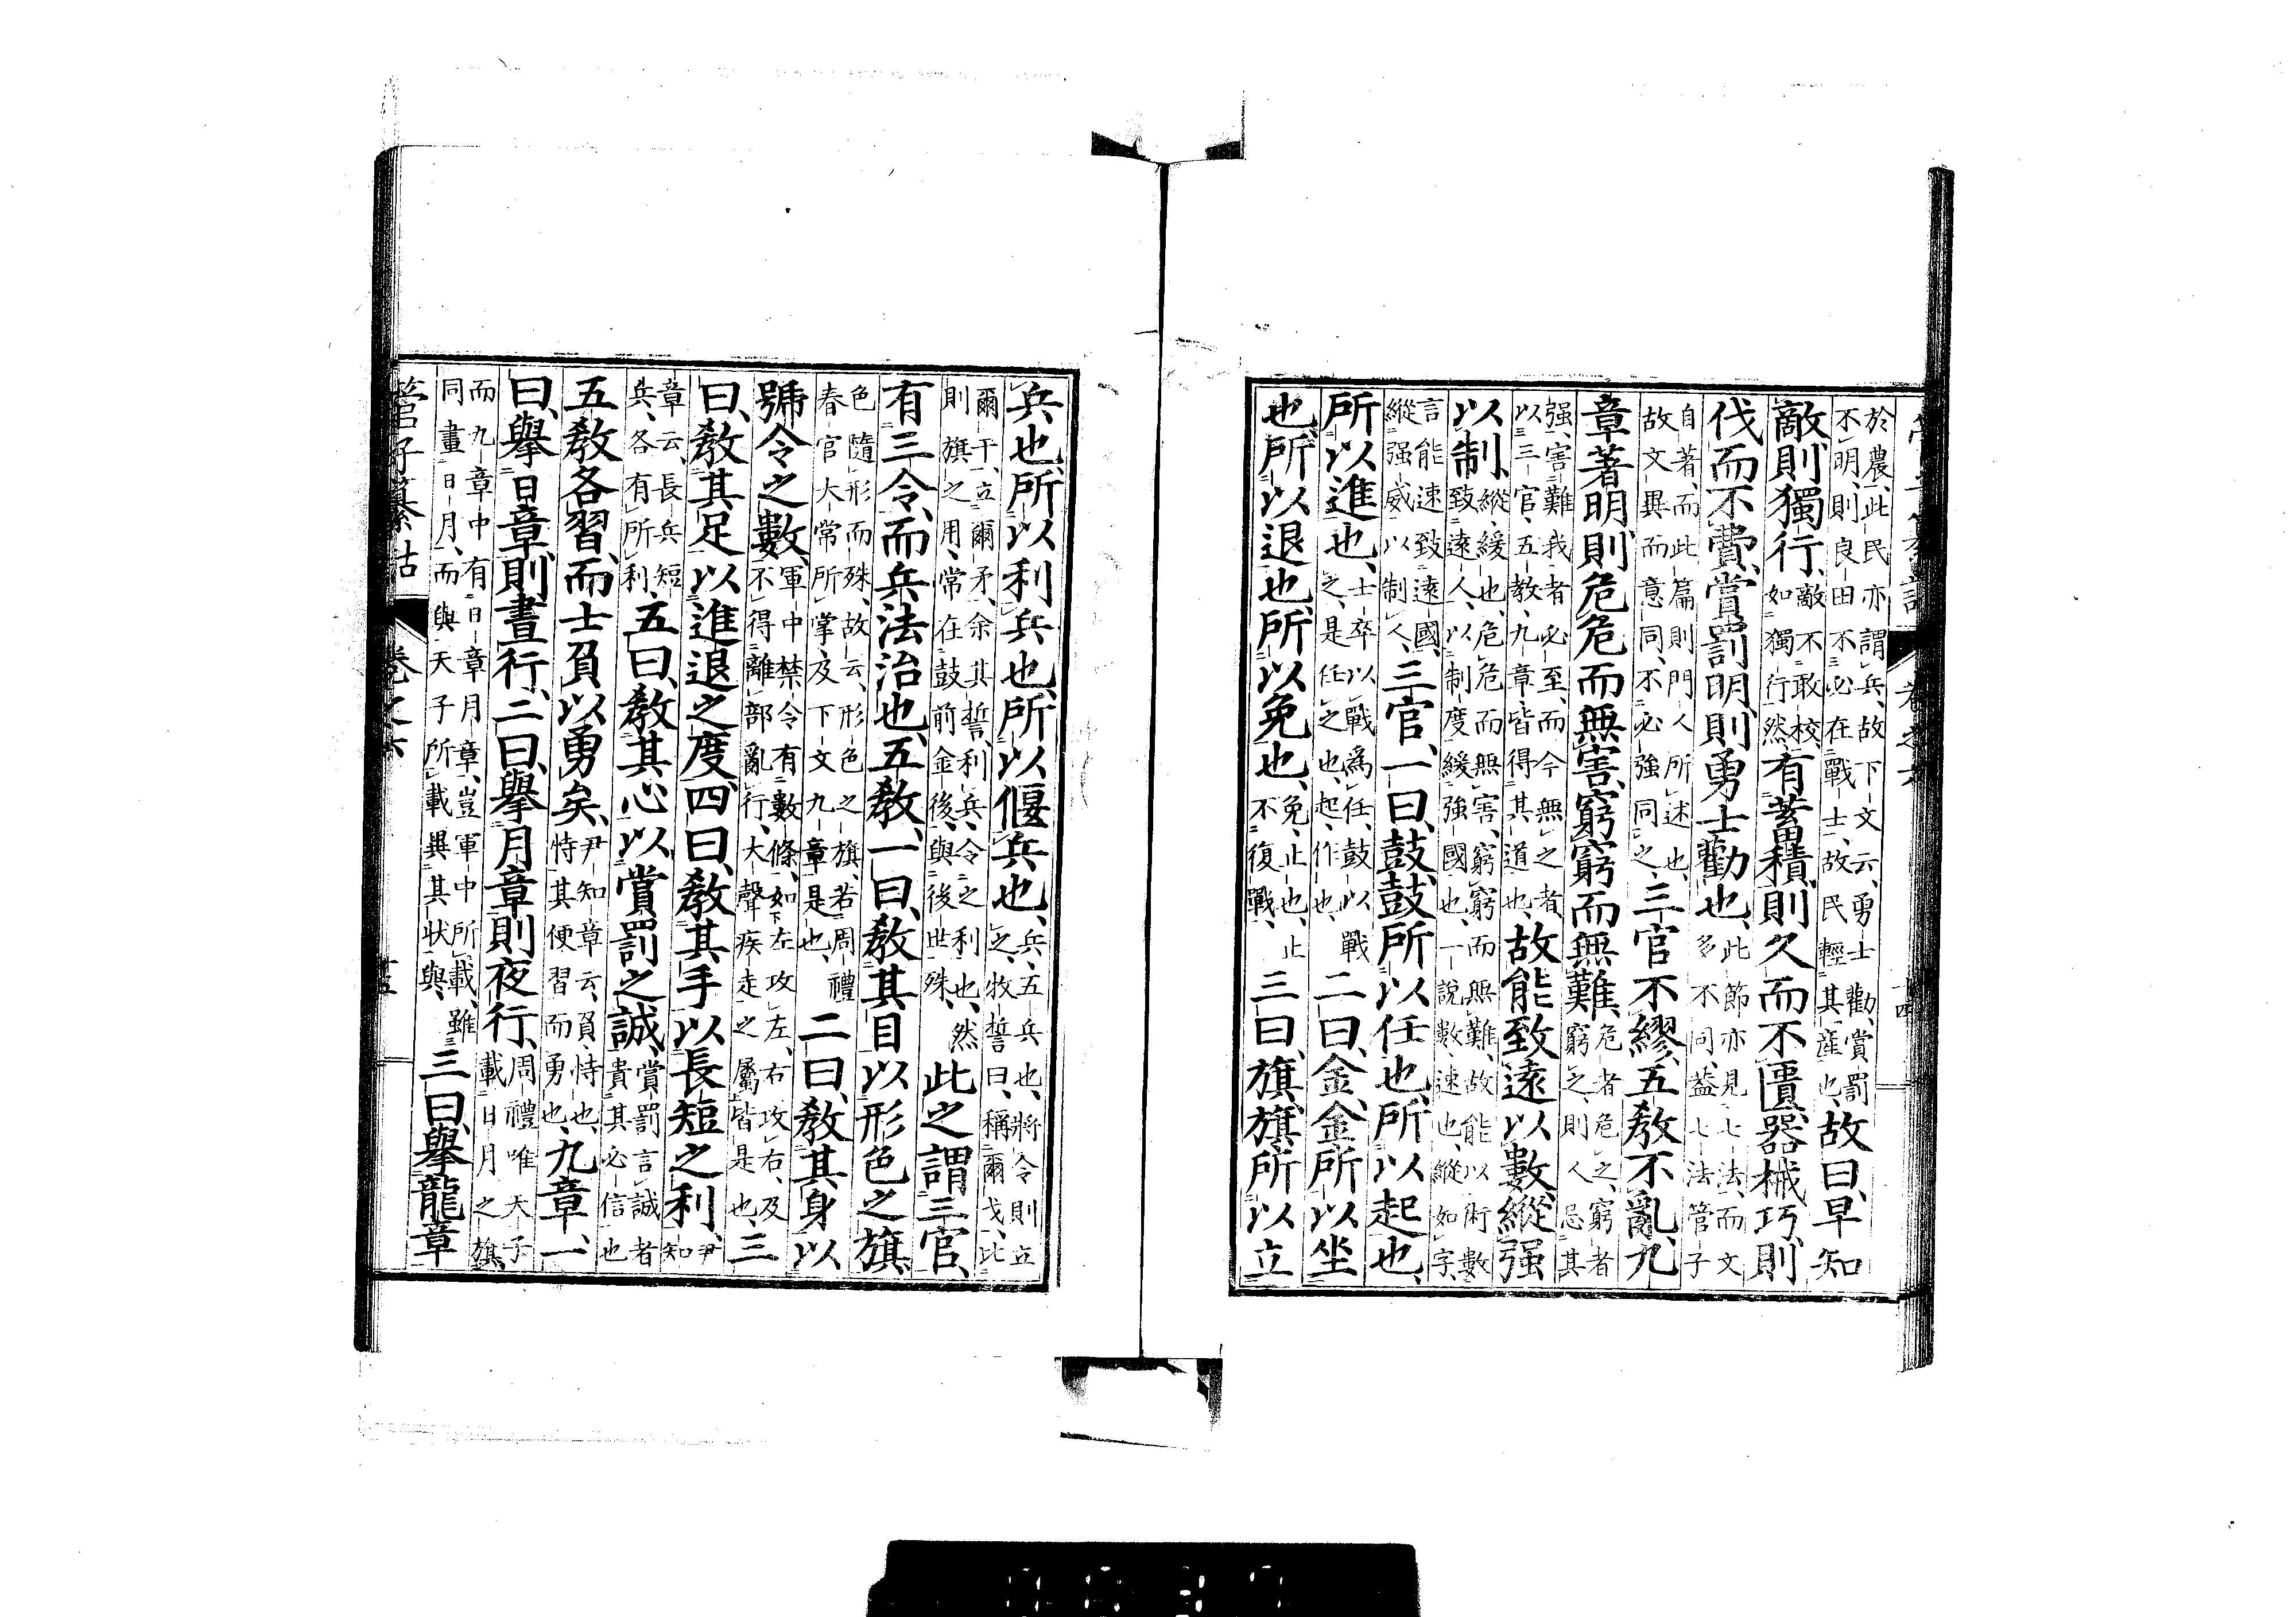 管子纂詁 卷之六 十四
於農、此民亦謂兵、故下文云、勇士勸、賞罰
不明、則良田不必在戰士、故民輕其產也、故曰、早知
敵則獨行、敵不敢校、如獨行然、有蓄積、則久而不匱、器械巧、則
伐而不費、賞罰明、則勇士勸也、此節亦見七法、而文多不同、蓋七法管子
自著、而此篇則門人所述也、故文異而意同、不必強同之、三官不繆、五教不亂、九
章著明、則危危而無害、窮窮而無難、危者危之、窮者窮之、則人忌其
强、害難我者必至、而今無之者、以三官、五教、九章、皆得其道也、故能致遠以數、縱强
以制、縱、緩也、危危而無害、窮窮而無難、故能以術數致遠人、以制度緩強國也、一說、數、速也、縱如字、
言能速致遠國、縱强威以制人、三官、一曰、鼓、鼓所以任也、所以起也、
所以進也、士卒以戰爲任、鼓以戰之、是任之也、起、作也、二曰、金、金所以坐
也、所以退也、所以免也、免、止也、止不復戰、三曰、旗、旗所以立
兵也、所以利兵也、所以偃兵也、兵、五兵也、將令則立之、牧誓曰、稱爾戈、比
爾干、立爾矛、余其誓、利兵、令之利也、然則旗之用、常在鼓前金後、與後世殊、此之謂三官、
有三令、而兵法治也、五教、一曰、教其目以形色之旗、
色隨形而殊、故云形色之旗、若周禮春官大常所掌、及下文九章是也、二曰、教其身以
號令之數、軍中禁令有數條、如下左攻左、右攻右、及不得離部亂行、大聲疾走之屬皆是也、三
曰、教其足以進退之度、四曰、教其手以長短之利、尹知
章云、長兵短兵、各有所利、五曰、教其心以賞罰之誠、賞罰言誠者貴其必信也
五教各習、而士負以勇矣、尹知章云、負、恃也、恃其便習而勇也、九章、一
曰、舉日章、則晝行、二曰、舉月章則夜行、周禮唯天子載日月之旗、
而九章中有日章月章、豈軍中所載、雖同畫日月、而與天子所載異其狀與、三曰、舉龍章
管子纂詁 卷之六 十五